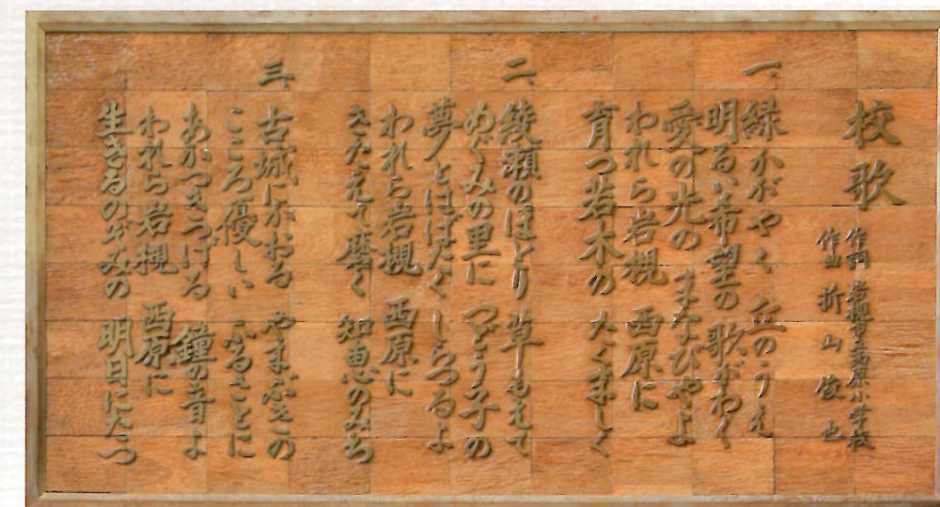 校歌
作詞 岩槻市立西原小学校
作曲 折山俊也
一、
緑かがやく 丘のうえ
明るい希望の 歌がわく
愛の光の まなびやよ
われら岩槻 西原に
育つ若木の たくましく
二、
綾瀬のほとり 草もえて
めぐみの里に つどう子の
夢とはばたく しらつるよ
われら岩槻 西原に
きたえて磨く 知恵のみち
三、
古城にかおる やまぶきの
こころ優しい ふるさとに
あかつきつげる 鐘の音よ
われら岩槻 西原に
生きるのぞみの 明日にたつ